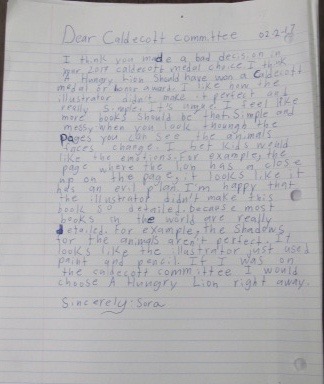 Dear Caldecott committee 02-2-17
I think you made a bad decision in
your 2017 caldecott medal choice I think
A Hungry Lion Should have won a Caldecott
medal or honor award. I like how the
illustrator didn't make it perfect and
really simple. It's unique. I feel like
more books should be that simple and
messy. when you look through the
pages you can see the animals
faces change. I bet kids would
like the emotions. For example, the
page where the lion has a close
up on the page, it looks like it
has an evil plan. I'm happy that
the illustrator didn't make this
book so detailed because most
books in the world are really
detailed. For example, the Shadows
for the animals aren't perfect. It
looks like the illustrator just used
paint and pencil. If I was on
the caldecott committee I would
choose A Hungry Lion right away.
Sincerely: Sora